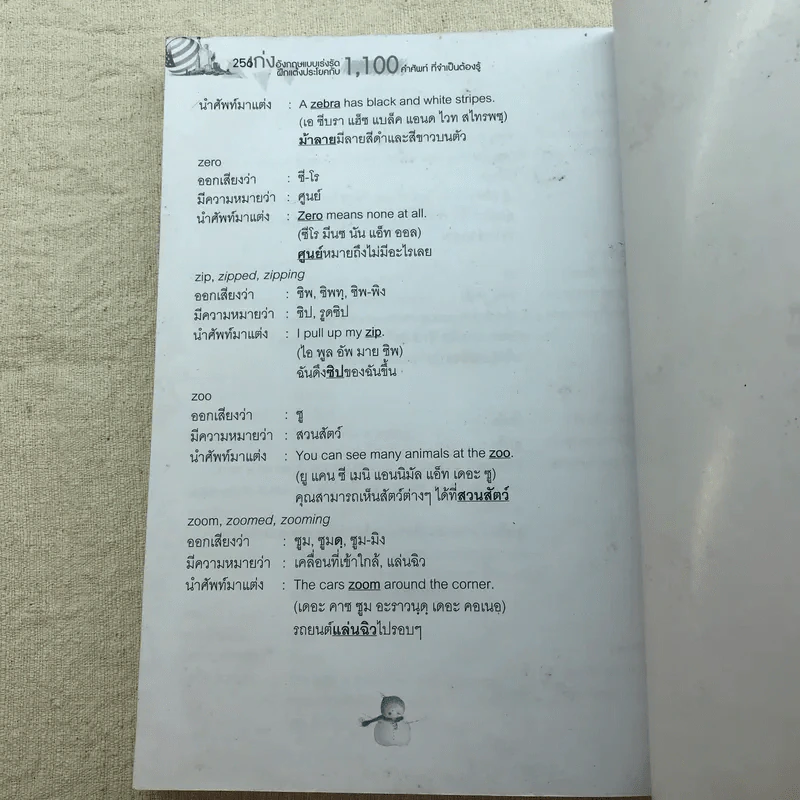 256 เก่งอังกฤษแบบเร่งรัด
ฝึกแต่งประโยคกับ 1,100 คำศัพท์ ที่จำเป็นต้องรู้
นำศัพท์มาแต่ง : A zebra has black and white stripes.
(เอ ซีบรา แฮ็ซ แบล็ค แอนด ไวท สไทรพซฺ)
ม้าลายมีลายสีดำและสีขาวบนตัว
zero
ออกเสียงว่า : ซี-โร
มีความหมายว่า : ศูนย์
นำศัพท์มาแต่ง : Zero means none at all.
(ซีโร มีนซ นัน แอ็ท ออล)
ศูนย์หมายถึงไม่มีอะไรเลย
zip, zipped, zipping
ออกเสียงว่า : ซิพ, ซิพทฺ, ซิพ-พิง
มีความหมายว่า : ซิป, รูดซิป
นำศัพท์มาแต่ง : I pull up my zip.
(ไอ พูล อัพ มาย ซิพ)
ฉันดึงซิปของฉันขึ้น
zoo
ออกเสียงว่า : ซู
มีความหมายว่า : สวนสัตว์
นำศัพท์มาแต่ง : You can see many animals at the zoo.
(ยู แคน ซี เมนิ แอนนิมัล แอ็ท เดอะ ซู)
คุณสามารถเห็นสัตว์ต่างๆ ได้ที่สวนสัตว์
zoom, zoomed, zooming
ออกเสียงว่า : ซูม, ซูมดฺ, ซูม-มิง
มีความหมายว่า : เคลื่อนที่เข้าใกล้, แล่นฉิว
นำศัพท์มาแต่ง : The cars zoom around the corner.
(เดอะ คาซ ซูม อะราวนฺดฺ เดอะ คอเนอฺ)
รถยนต์แล่นฉิวไปรอบๆ